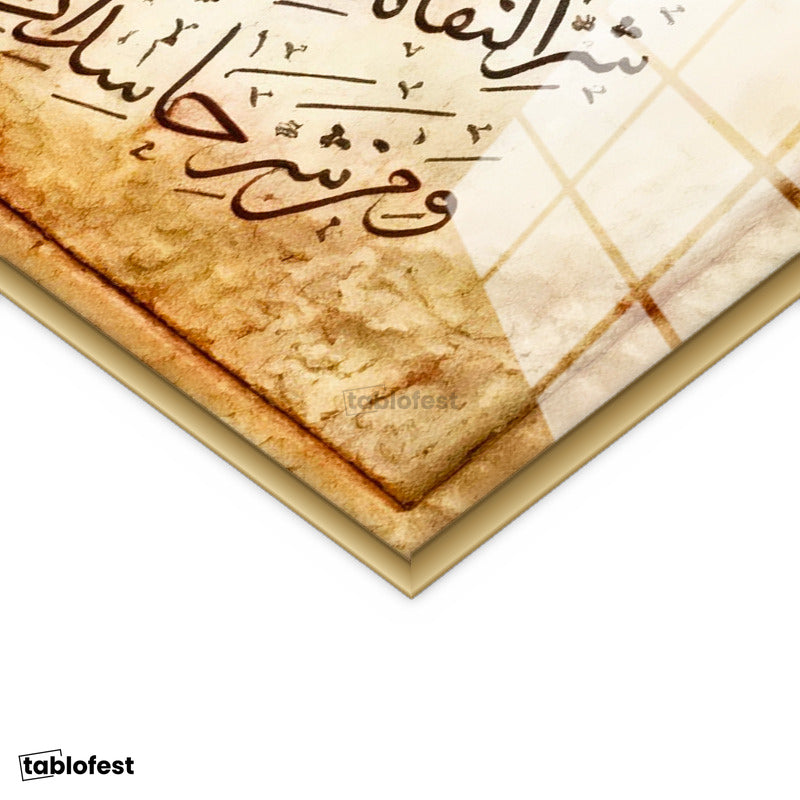 شَرِّ النَّفَّاثَاتِ
وَمِنْ شَرِّ حَاسِدٍ
tablofest
tablofest